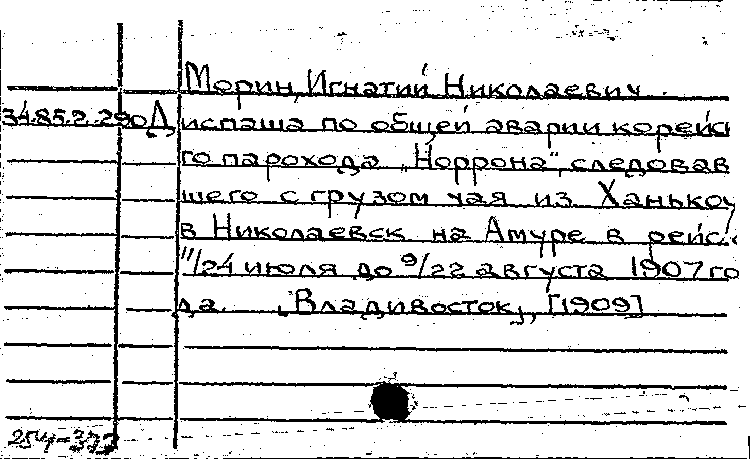 Морин, Игнатий Николаевич.
34.85.2.290 Диспаша по общей аварии корейс
го парохода „Норрона", следовав
шего с грузом чая из Ханькоу
в Николаевск на Амуре в рейс
11/24 июля до 9/22 августа 1907 го
да. Владивосток, [1909]
254-373